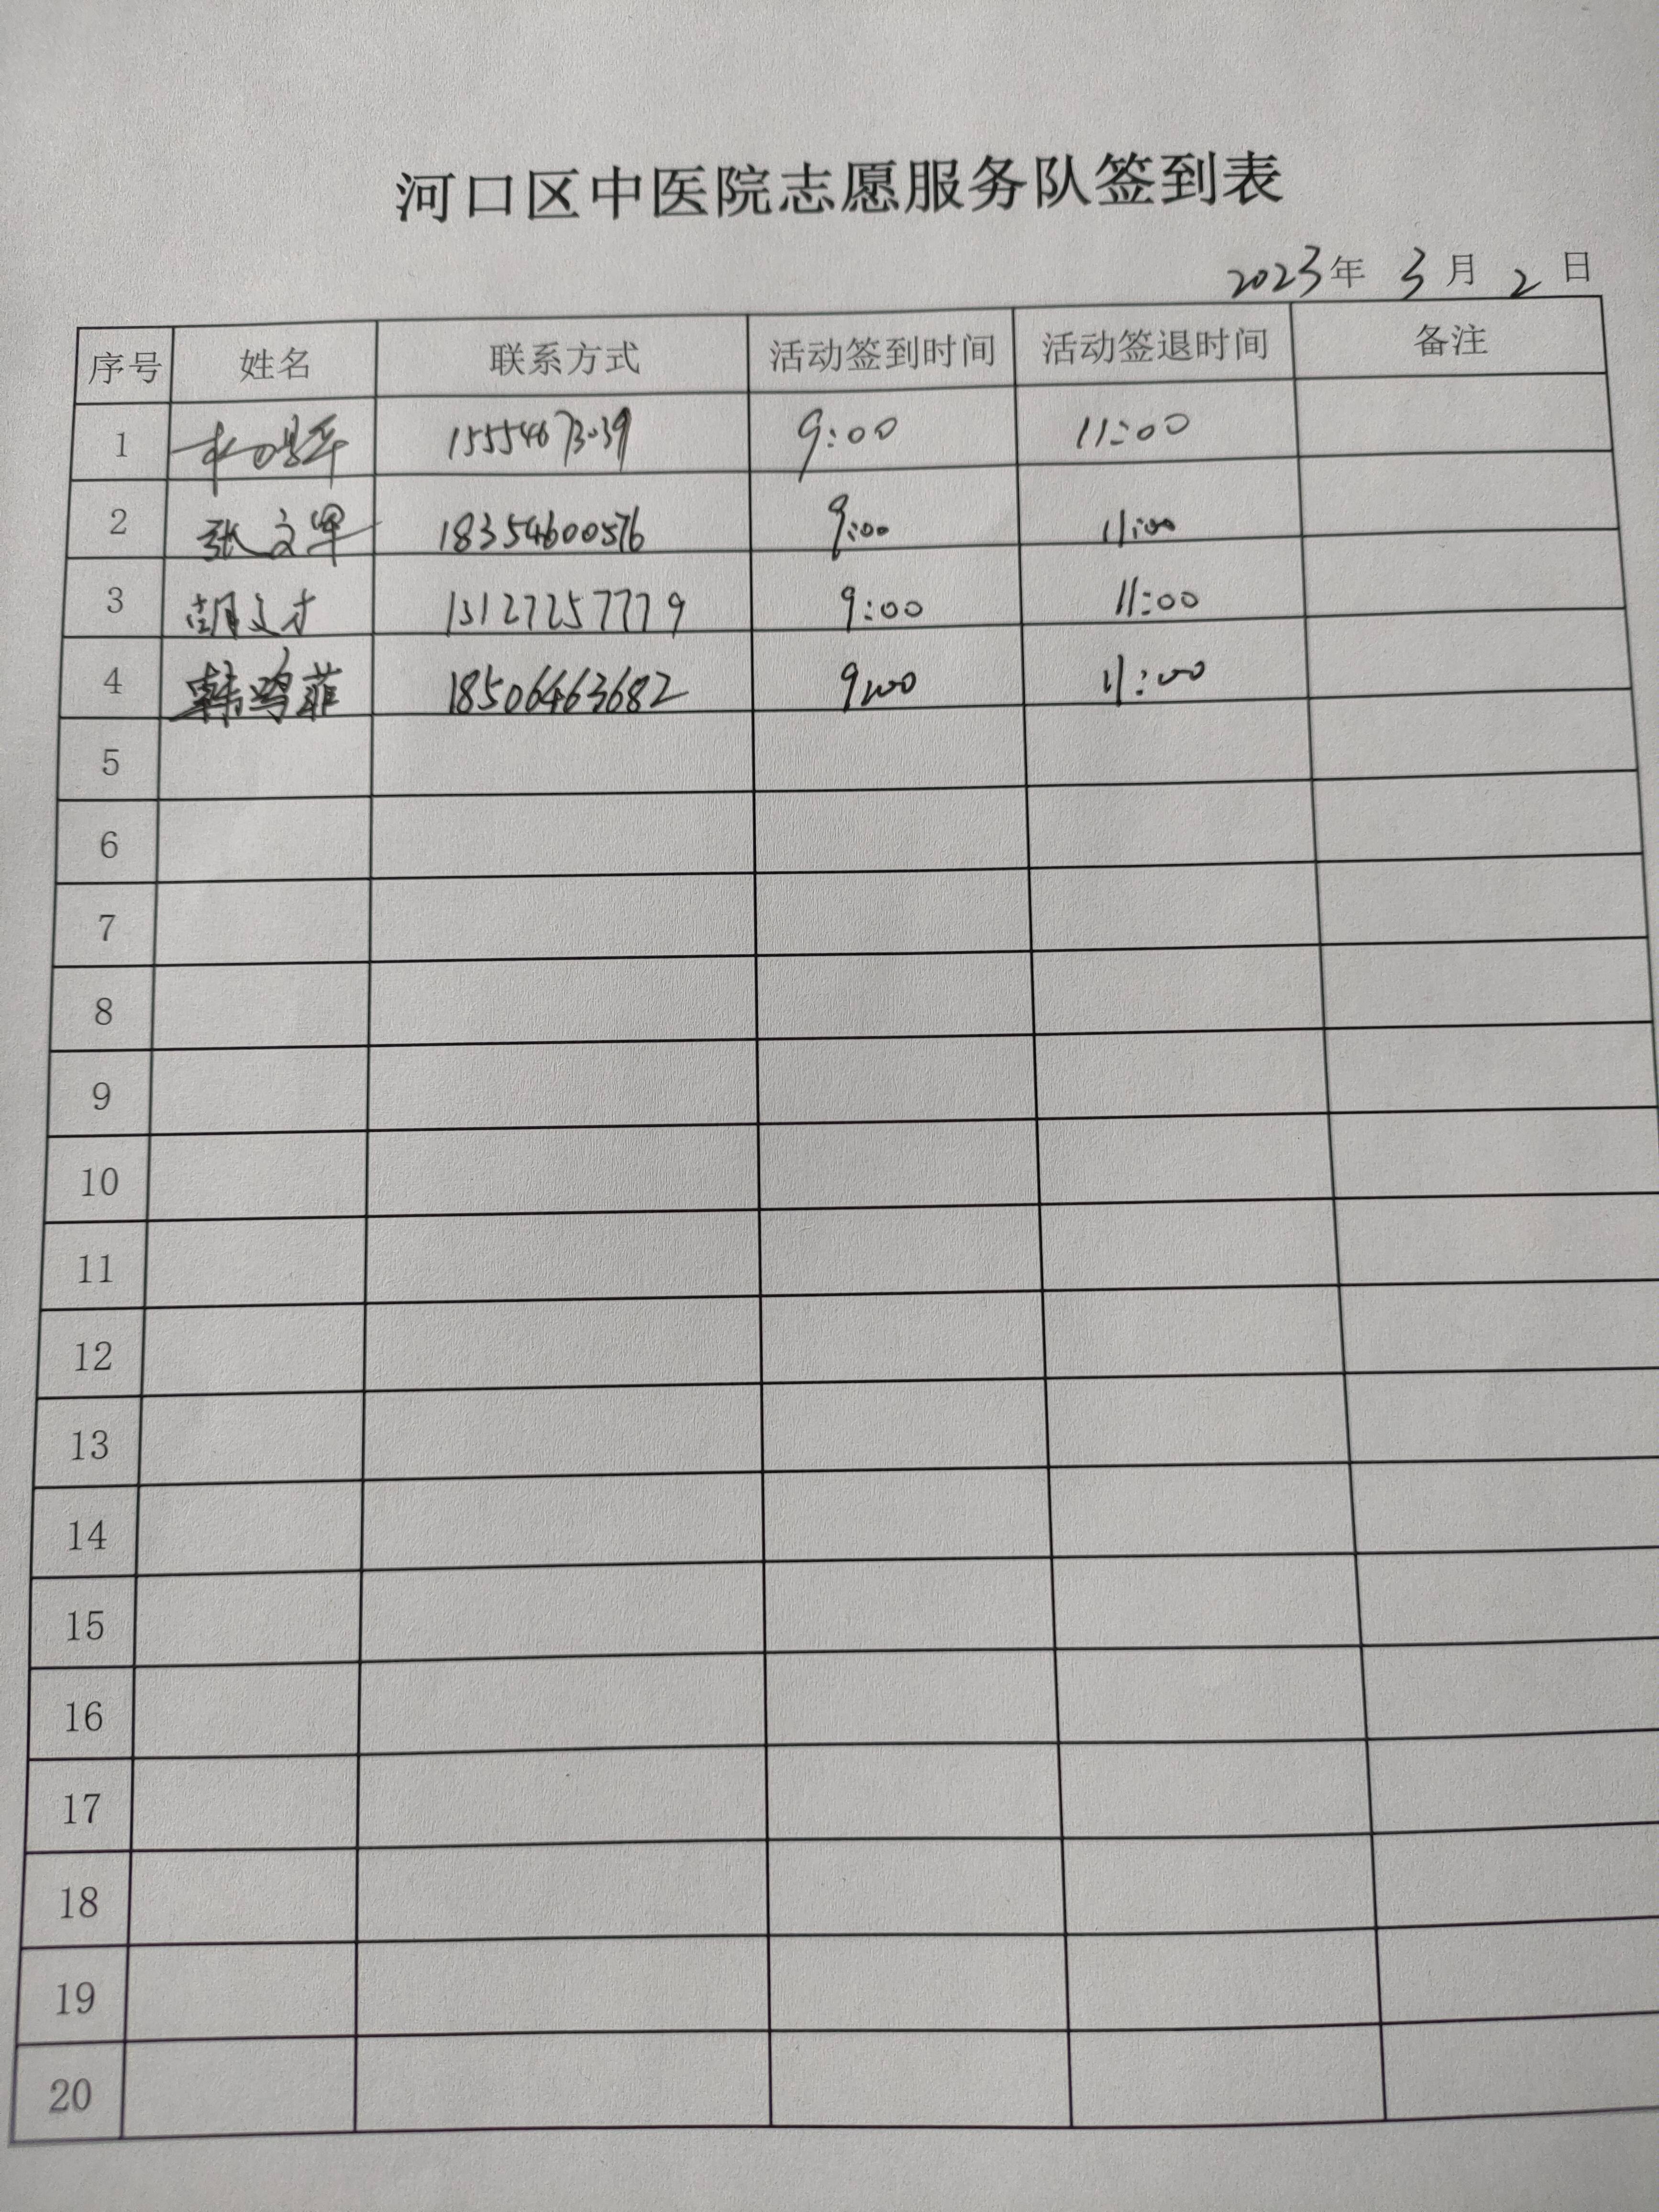 河口区中医院志愿服务队签到表
2023年 3月 2日
序号 姓名 联系方式 活动签到时间 活动签退时间 备注
1 9:00 11:00
2 张文军 18354600576 9:00 11:00
3 胡文才 13127257779 9:00 11:00
4 韩鸣菲 18506463682 9:00 11:00
5
6
7
8
9
10
11
12
13
14
15
16
17
18
19
20